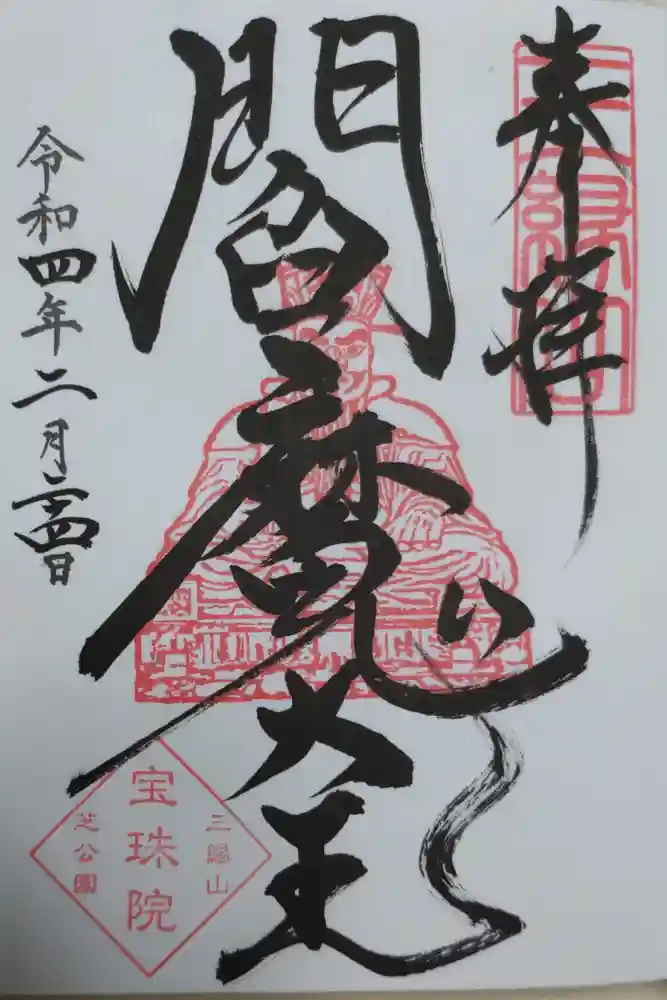 奉拝
三縁山
閻魔大王
令和四年二月二十四日
三縁山
宝珠院
芝公園